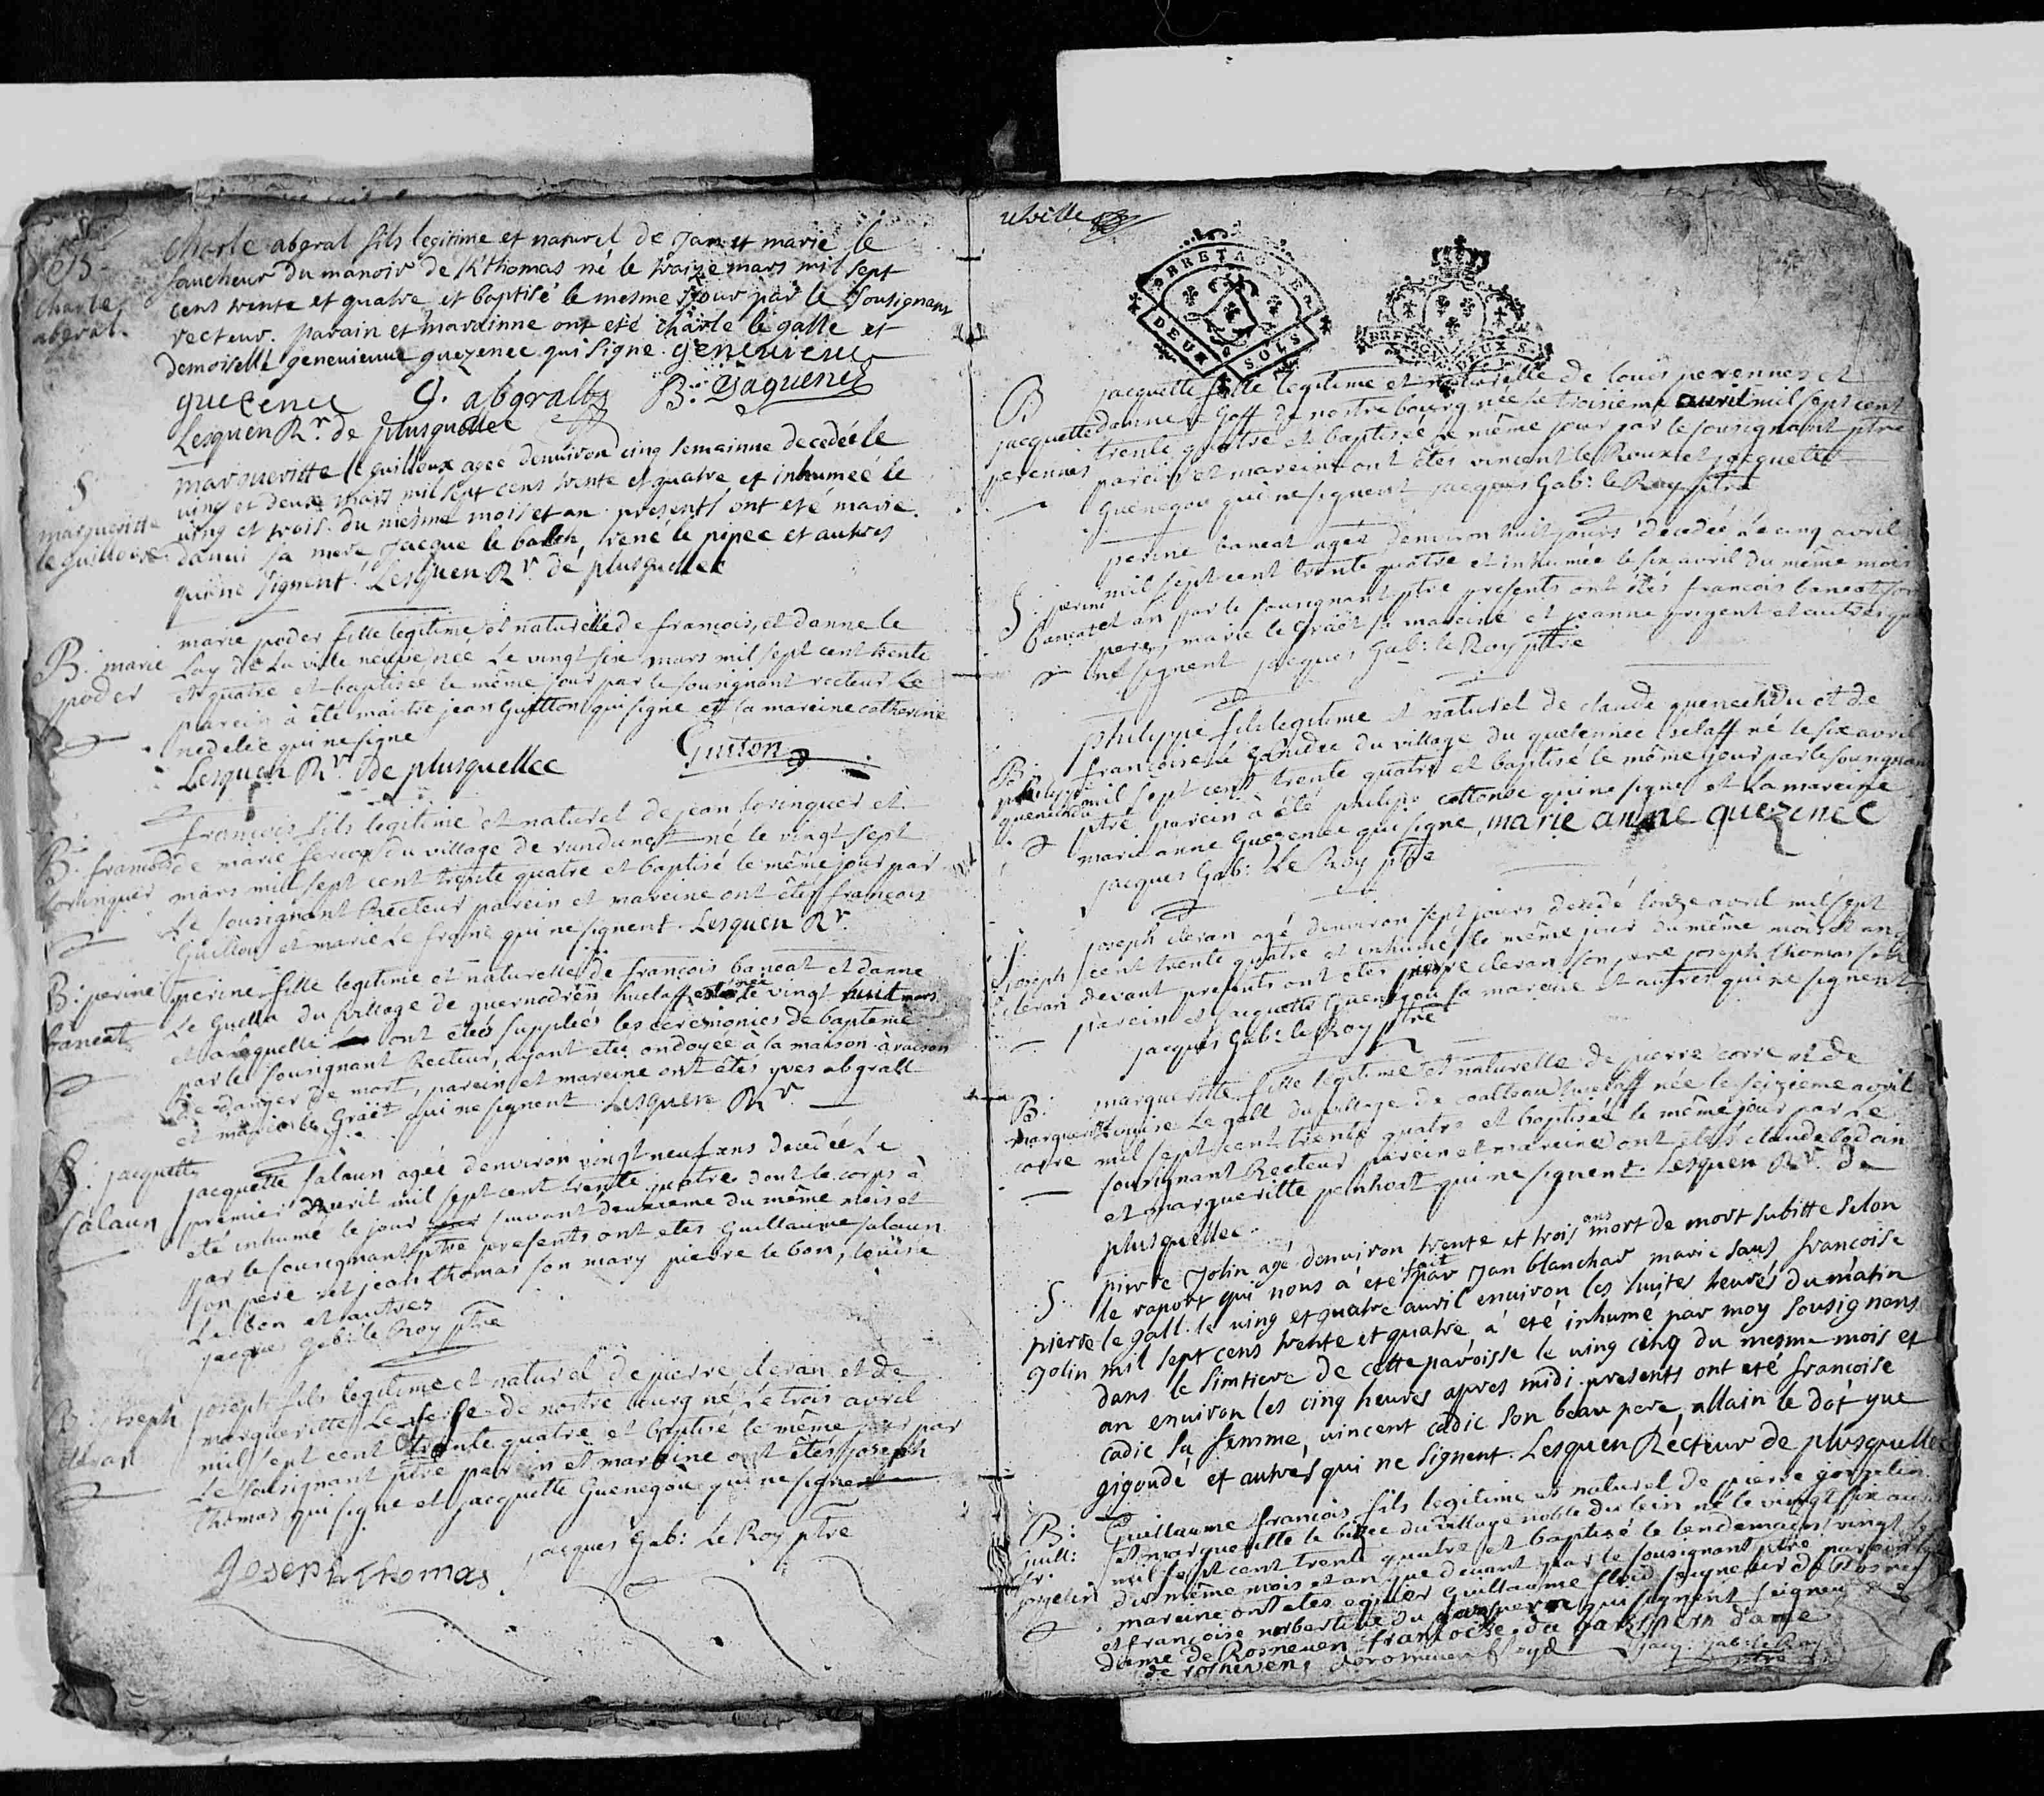 B.
charle
abgral.
charle abgral fils legitime et naturel de Jan et marie le
faucheur du manoir de K'thomas né le traize mars mil sept
cens trente et quatre et baptisé le mesme jour par le sousignant
recteur. parain et marainne ont eté charle le galle et
demoiselle genevienne quezenec qui signe. genevienne
quezenec G. abgrall B: Daguenet
Lesquen Rr. de plusquellec
S
margueritte
le guilloux
margueritte le guilloux ageé denuiron cinq semainne decedeé le
uing et deux mars mil sept cens trente et quatre et inhumeé le
uing et trois du mesme mois et an presents ont eté marie
danui sa mere Jacque le balch, rené le pipec et autres
qui ne signent. Lesquen Rr. de plusquellec
B: marie
poder
marie poder fille legitime et naturelle de françois, et danne le
Lay de La ville neuve née Le vingt six mars mil sept cent trente
et quatre et baptisée le même jour par le sousignant recteur Le
parein à êté maitre jean Guitton qui signe et la mareine catherine
nedelec qui ne signe
Lesquen Rr. de plusquellec Guiton
B. francois
corinquer
françois fils legitime et naturel de jean corinquer et
de marie fercoq du village de rundunet né le vingt sept
mars mil sept cent trente quatre et baptisé le même jour par
Le sousignant Recteur parein et mareine ont êtés françois
Guillou et marie Le frome qui ne signent. Lesquen Rr.
B: perine
baneat
perine fille legitime et naturelle de françois baneat et danne
Le Guella du village de guernodren huelaff née le vingt huit mars
et a laquelle ont êtés suppléés les ceremonies de bapteme
par le sousignant Recteur, ayant êtés ondoyee à la maison à raison
de danger de mort, parein et mareine ont êtés yves abgrall
et marie le Graët qui ne signent. Lesquen Rr.
S: jacquette
salaun
jacquette salaun agée denviron vingt neuf ans decedée Le
premier avril mil sept cent trente quatre dont le corps à
eté inhumé le jour suivant deuxieme du même mois et
par le sousignant ptre presents ont etes Guillaume salaun
son pere et jean thomas son mary pierre le bon, louise
Le bon et autres
jacques Gab: le Roy ptre
B: joseph
cleran
joseph fils legitime et naturel de pierre cleran et de
margueritte Le de nostre bourg né Le trois avril
mil sept cent trente quatre et baptisé le même jour par
Le sousignant ptre parein et mareine ont êtés joseph
thomas qui signe et jacquette Guenegou qui ne signe
Joseph Thomas jacques Gab: Le Roy ptre
BRETAGNE
DEUX SOLS
B
jacquette
perennes
jacquette fille legitime et naturelle de louis perennes et
danne Goff de nostre bourg née le troisieme avril mil sept cent
trente quatre et baptisée le même jour par le sousignant ptre
parein et mareine ont êtes vincent le Roux et jacquette
Guenegou qui ne signent jacques Gab: le Roy ptre
S: perine
baneat
perine baneat ageé denviron huit jours decedée Le cinq avril
mil sept cent trente quatre et inhumée le six avril du même mois
et an par le sousignant ptre presents ont êtés francois baneat son
pere, marie le Graët sa mareine et jeanne prigent et autres qui
ne signent jacques Gab: le Roy ptre
B:
philippe
quenechdu
philippe fils legitime et naturel de claude quenechdu et de
francoise le du village du quelennec iselaff né le six avril
mil sept cent trente quatre et baptisé le même jour par le sousignant
ptre parein à été philippe cottonec qui ne signe et la mareine
marie anne Guezenec qui signe, marie anne quezenec
jacques Gab: Le Roy ptre
S.
joseph
cleran
joseph cleran agé denviron sept jours decedé l'onze avril mil sept
cent trente quatre et inhumé le même jour du même mois et an
devant presents ont etes pierre cleran son pere joseph thomas son
parein et jacquette Guenegou sa mareine et autres qui ne signent
jacques Gab: le Roy ptre
B:
margueritte
corre
margueritte fille legitime et naturelle de pierre corre et de
Louise Le gall du village de coatleau huelaff née le seizieme avril
mil sept cent trente quatre et baptisée le même jour par Le
sousignant Recteur parein et mareine ont êtés claude lodoin
et margueritte penhoat qui ne signent. Lesquen Rr. de
plusquellec.
S.
pierre
golin
pierre Jolin agé denuiron trente et trois ans mort de mort subitte selon
le raport qui nous à été fait par Jan blanchar marie saus francoise
le gall. le uing et quatre auril enuiron les huites heurés du matin
mil sept cens trente et quatre, a' eté inhumé par moy sousignans
dans le simtiere de cette paroisse le uing cinq du mesme mois et
an enuiron les cinq heures appres midi. presents ont eté françoise
cadic sa femme, uincent cadic son beau pere, allain le dot yue
gigoudé et autrés qui ne signent. Lesquen Recteur de plusquellec
B:
guill:
fr:
jozelin
Guillaume françois fils legitime et naturel de pierre gozelin
et margueritte le bizec du village noble du lein né le vingt six avril
mil sept cent trente quatre et baptisé le lendemain vingt sept
du même mois et an que devant par le sousignant ptre parein et
mareine ont etes ecuier Guillaume floid seigneur de Rosneven
et françoise norbertine du garzpern qui signent seigneur et
dame de Rosneven francoise du garzspern dame
de rosneven, de rosneven floyd jacq: Gab: le Roy
ptre